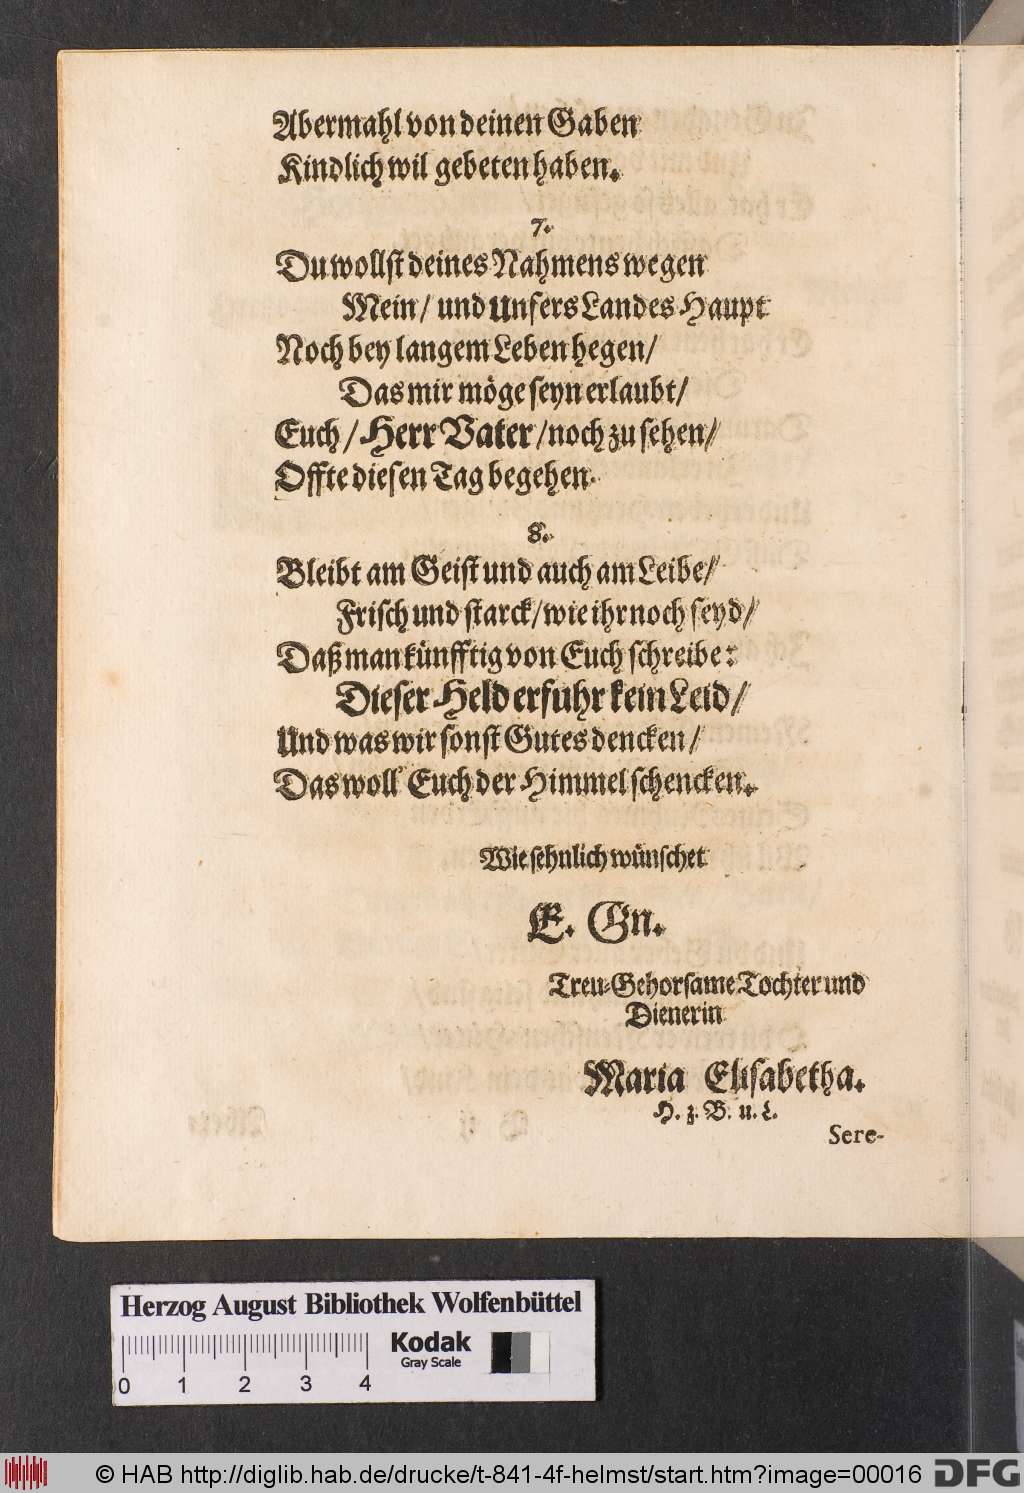 Abermahl von deinen Gaben
Kindlich wil gebeten haben.
7.
Du wollst deines Nahmens wegen
Mein / und Unsers Landes Haupt
Noch bey langem Leben hegen /
Das mir möge seyn erlaubt /
Euch / Herr Vater / noch zu sehen /
Offte diesen Tag begehen.
8.
Bleibt am Geist und auch am Leibe /
Frisch und starck / wie ihr noch seyd /
Daß man künfftig von Euch schreibe:
Dieser Held erfuhr kein Leid /
Und was wir sonst Gutes dencken /
Das woll' Euch der Himmel schencken.
Wie sehnlich wünschet
E. Gn.
Treu-Gehorsame Tochter und
Dienerin
Maria Elisabetha.
H. z. B. u. L.
Sere-
Herzog August Bibliothek Wolfenbüttel
Kodak
Gray Scale
0 1 2 3 4
© HAB http://diglib.hab.de/drucke/t-841-4f-helmst/start.htm?image=00016
DFG